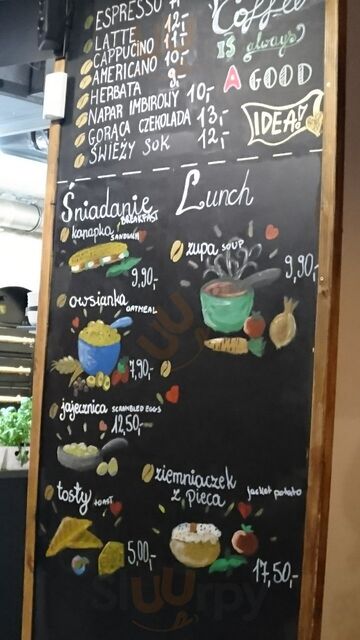 ESPRESSO
LATTE 12,-
CAPPUCINO 11,-
AMERICANO 10,-
HERBATA 9,-
NAPAR IMBIROWY 10,-
GORĄCA CZEKOLADA 13,-
ŚWIEŻY SOK 12,-
Coffee
IS always
A GOOD
IDEA!
Śniadanie
BREAKFAST
kanapka SANDWICH
9,90,-
owsianka
OATMEAL
7,90,-
jajecznica SCRAMBLED EGGS
12,50,-
tosty TOAST
5,00,-
Lunch
zupa SOUP
9,90,-
ziemniaczek
z pieca jacket potato
17,50,-
Sluurpy